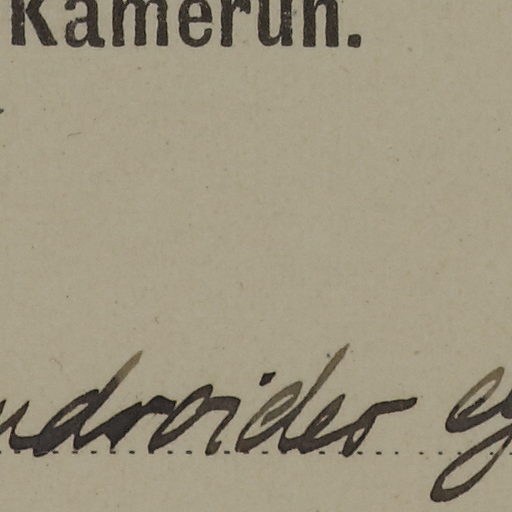 Kamerun.
ndroides